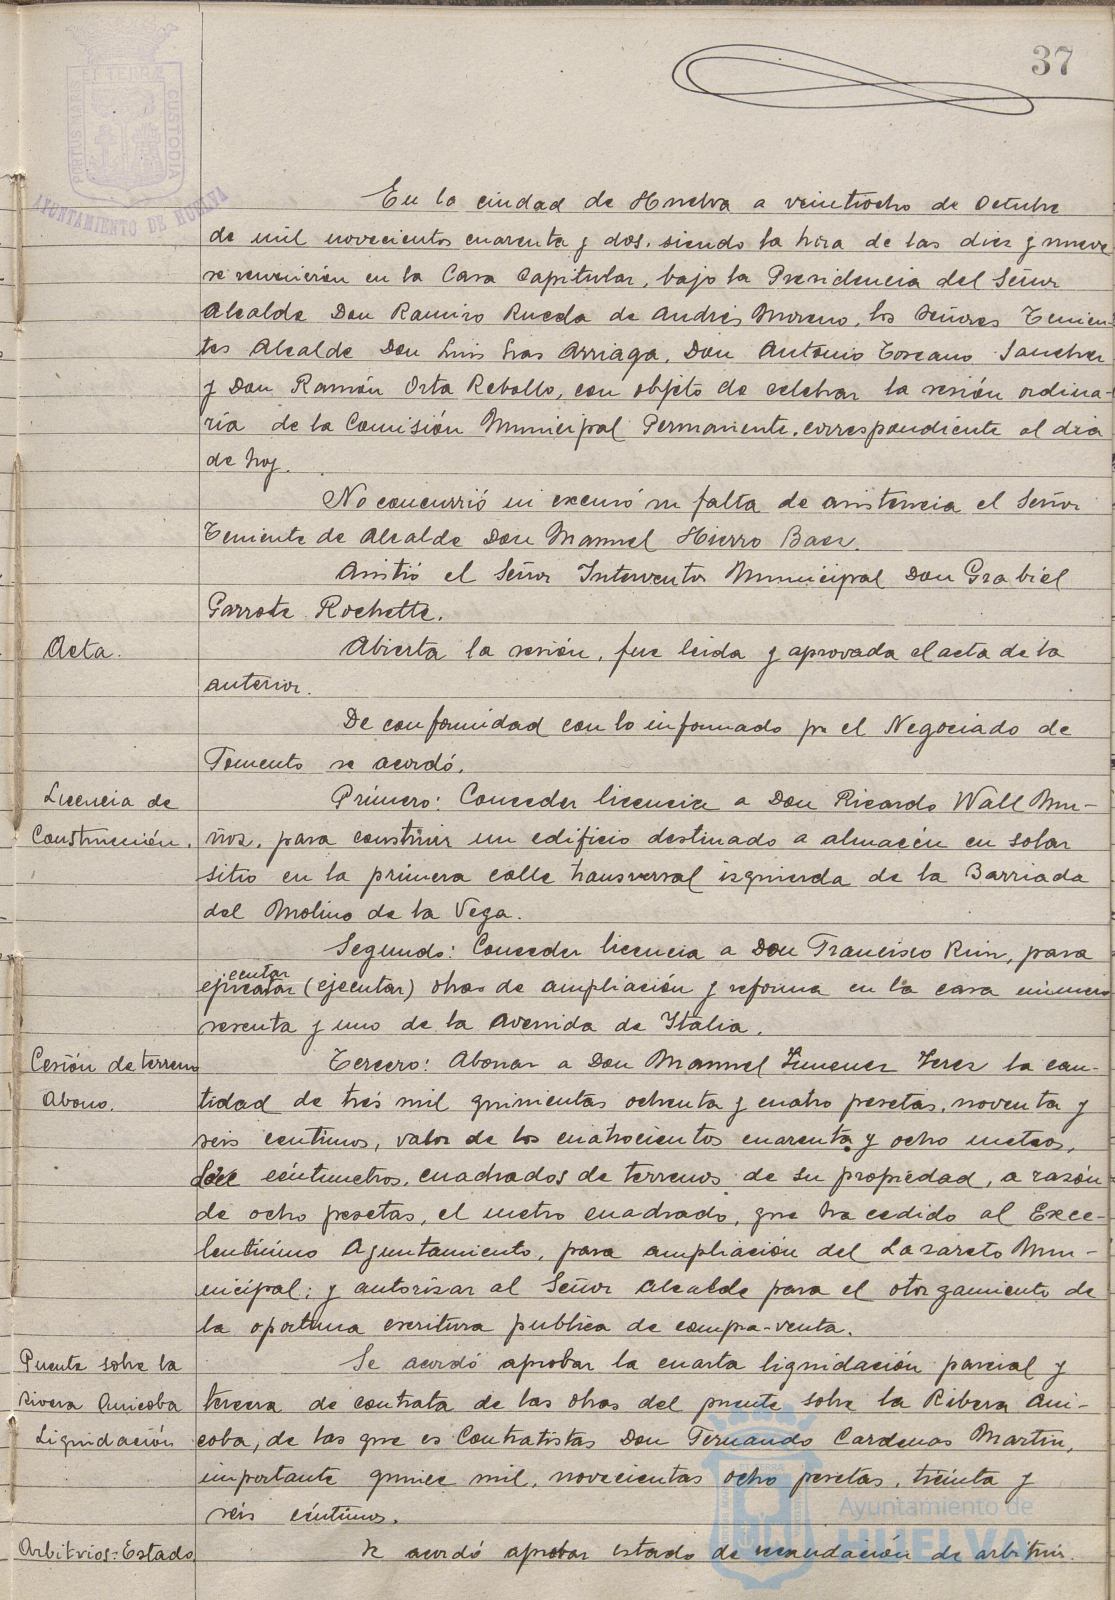 37
PORTUS MARIS ET TERRÆ CUSTODIA
AYUNTAMIENTO DE HUELVA
En la ciudad de Huelva a veintiocho de Octubre
de mil novecientos cuarenta y dos, siendo la hora de las diez y nueve
se reunieron en la Casa Capitular, bajo la Presidencia del Señor
Alcalde Don Ramiro Rueda de Andrés Moreno, los Señores Tenien-
tes Alcalde Don Luis Gras Arriaga, Don Antonio Toscano Sanchez
y Don Ramón Orta Rebollo, con objeto de celebrar la sesión ordina-
ria de la Comisión Municipal Permanente, correspondiente al dia
de hoy.
No concurrió ni excusó su falta de asistencia el Señor
Teniente de Alcalde Don Manuel Hierro Baez.
Asistió el Señor Interventor Municipal Don Grabiel
Garrote Rochette.
Acta.
Abierta la sesión, fue leida y aprovada el acta de la
anterior.
De conformidad con lo informado por el Negociado de
Fomento se acordó.
Licencia de
Construcción.
Primero: Conceder licencia a Don Ricardo Wall Mu-
ñoz, para construir un edificio destinado a almacén en solar
sitio en la primera calle transversal izquierda de la Barriada
del Molino de la Vega.
Segundo: Conceder licencia a Don Francisco Ruiz, para
ecutar
(ejecutar) obras de ampliación y reforma en la casa número
sesenta y uno de la Avenida de Italia.
Cesión de terreno
Abono.
Tercero: Abonar a Don Manuel Jimenez Jerez la can-
tidad de tres mil quinientas ochenta y cuatro pesetas, noventa y
seis centimos, valor de los cuatrocientos cuarenta y ocho metros,
doce céntimetros, cuadrados de terrenos de su propiedad, a razón
de ocho pesetas, el metro cuadrado, que ha cedido al Exce-
lentisimo Ayuntamiento, para ampliación del Lazareto Mu-
nicipal; y autorizar al Señor Alcalde para el otorgamiento de
la oportuna escritura publica de compra-venta.
Puente sobre la
Rivera Anicoba
Liquidación
Se acordó aprobar la cuarta liquidación parcial y
tercera de contrata de las obras del puente sobre la Ribera Ani-
coba, de las que es Contratistas Don Fernando Cardenas Martin,
importante quince mil, novecientas ocho pesetas, treinta y
seis céntimos.
Arbitrios: Estado
Se acordó aprobar estado de recaudación de arbitrios
Ayuntamiento de
HUELVA